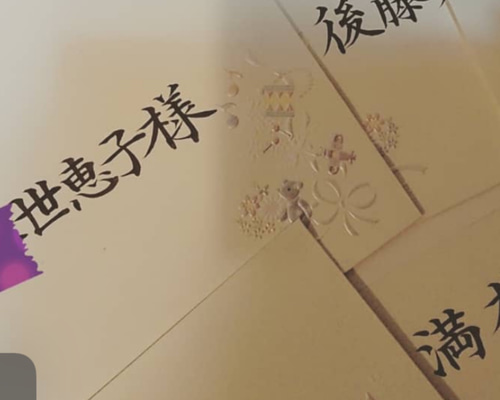 世恵子様
後藤
満